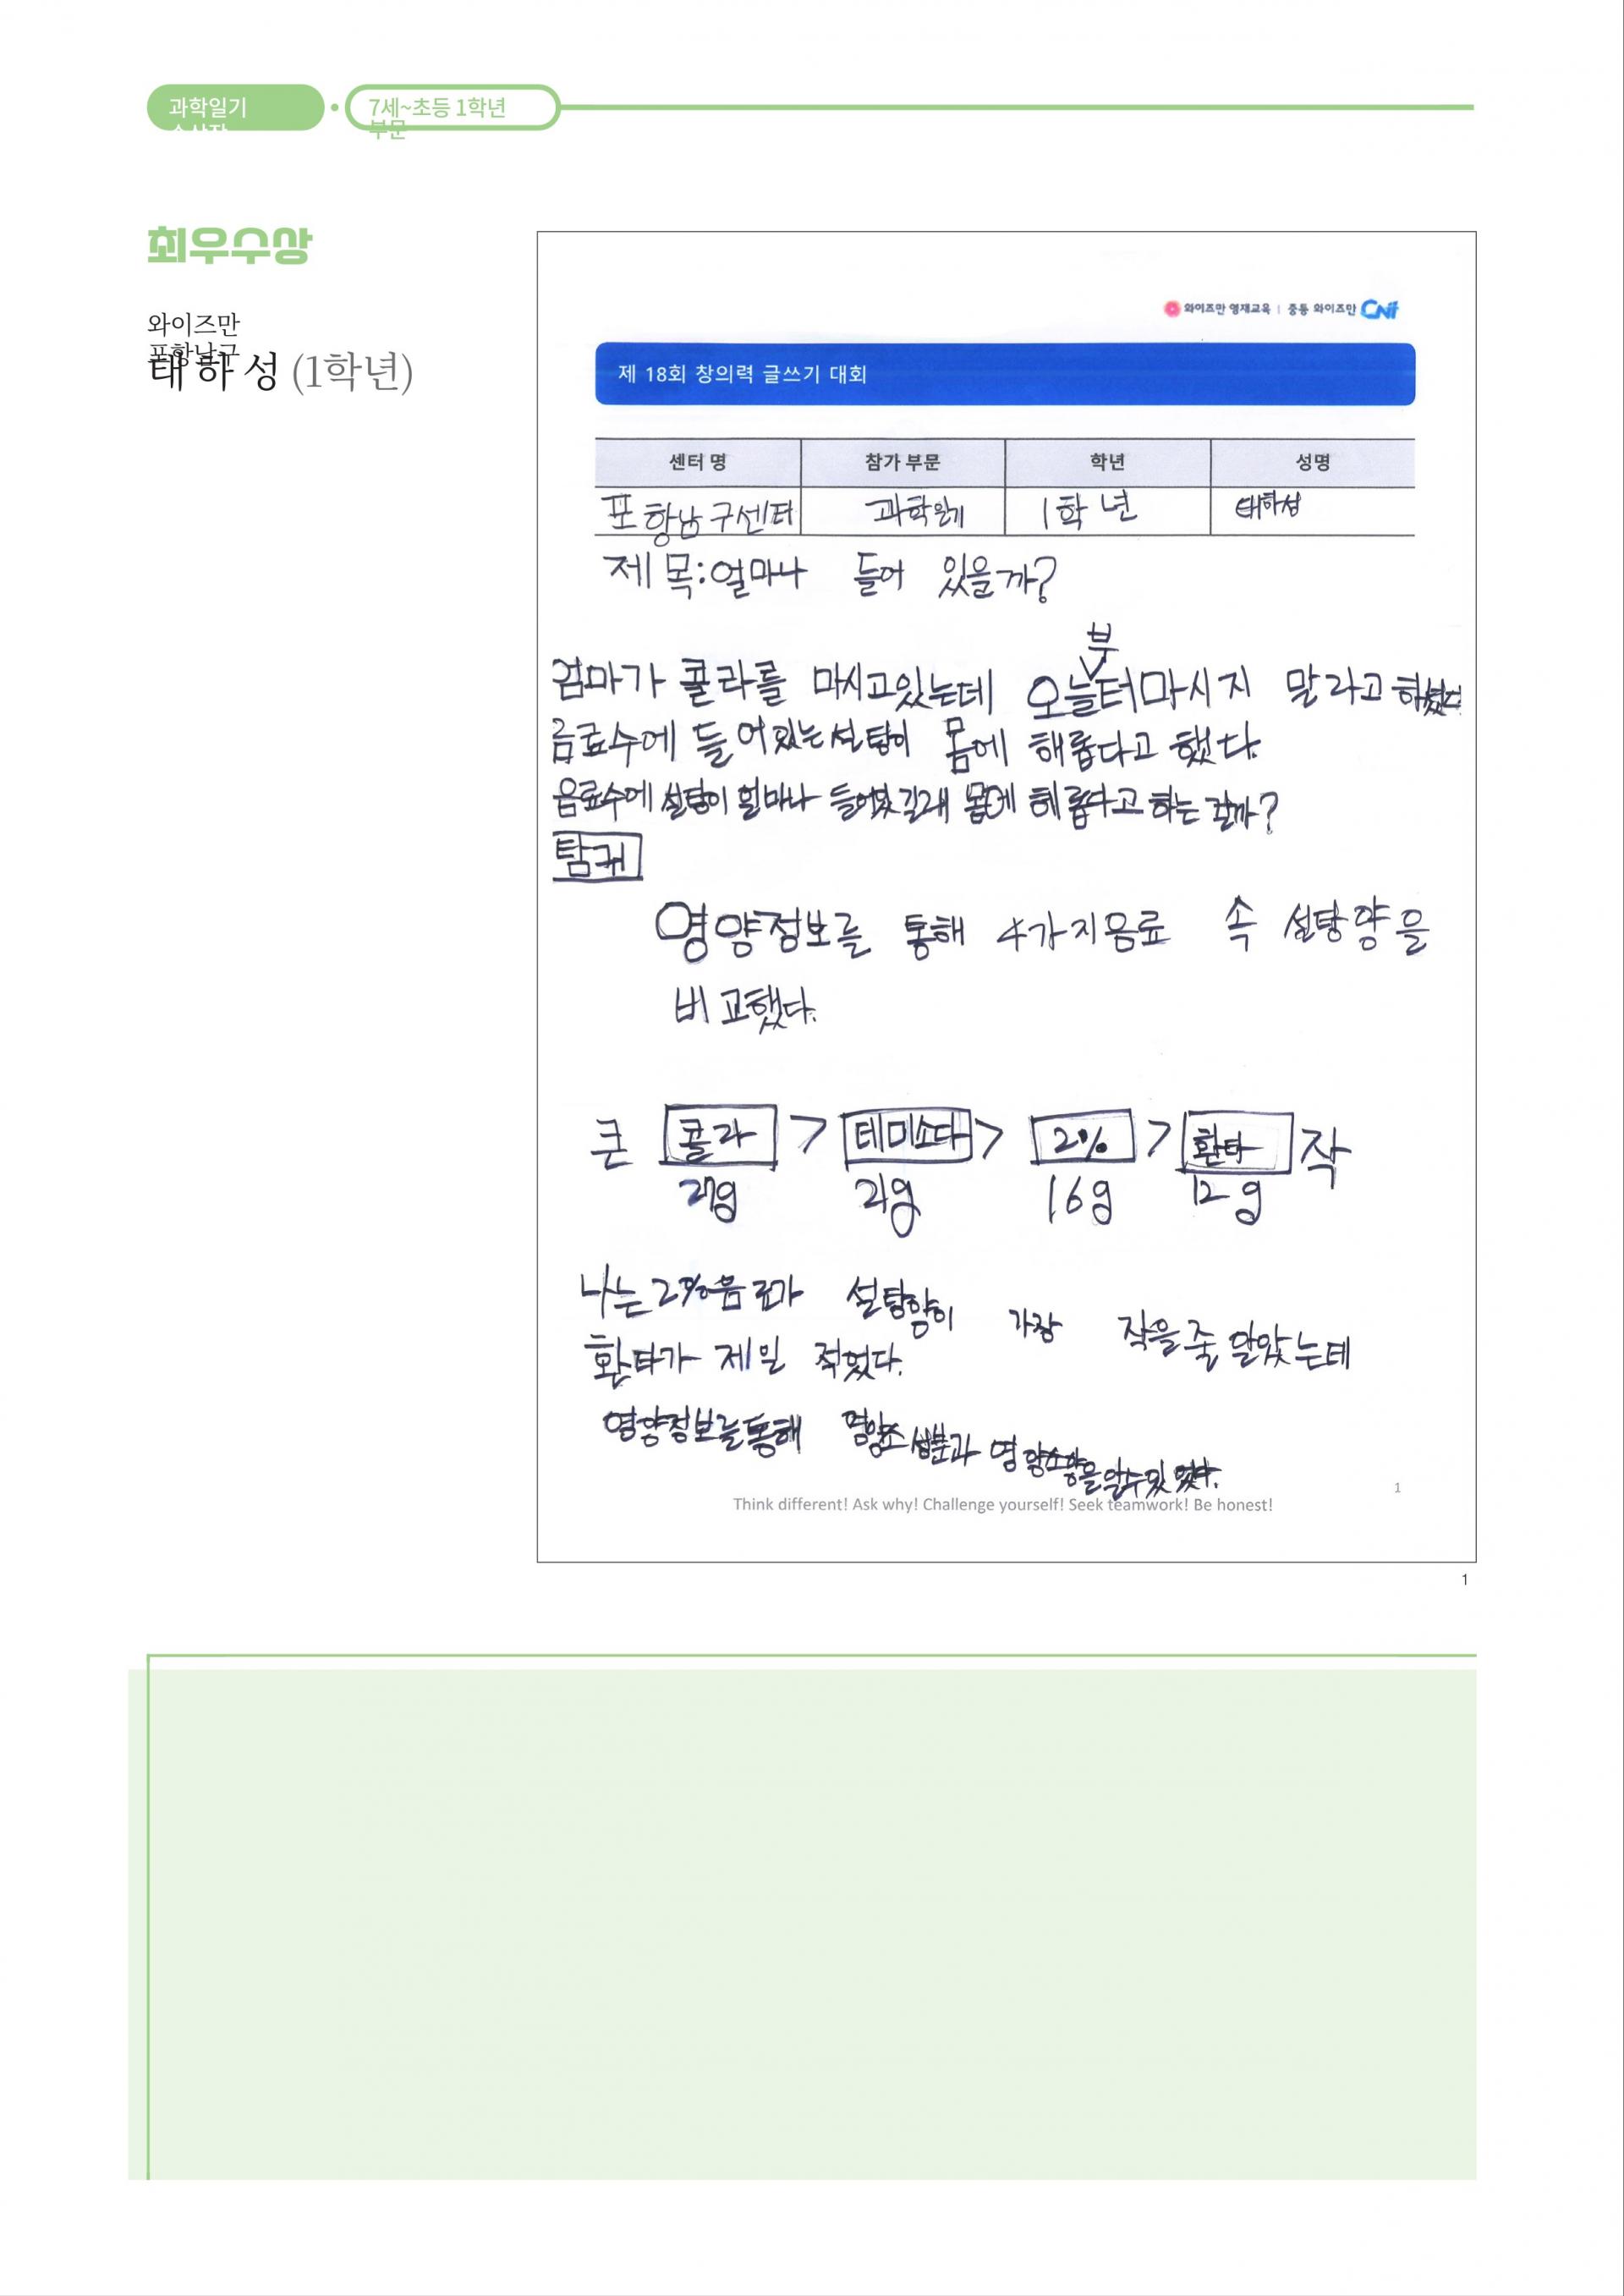 과학일기
수상작
7세~초등 1학년
부문
최우수상
와이즈만
포항남구
태하성 (1학년)
와이즈만 영재교육 | 중등 와이즈만 CNi
제 18회 창의력 글쓰기 대회
센터 명 참가 부문 학년 성명
포항남구센터 과학일기 1학년 태하성
제목:얼마나 들어 있을까?
부
엄마가 콜라를 마시고있는데 오늘터마시지 말라고 하셨다
음료수에 들어있는설탕이 몸에 해롭다고 했다.
음료수에 설탕이 얼마나 들어있길래 몸에 헤롭다고 하는 걸까?
탐구
영양정보를 통해 4가지음료 속 설탕양을
비교했다.
큰 콜라 > 테미소다 > 2% > 환타 작
27g 21g 16g 12g
나는 2%음료가 설탕양이 가장 작을줄 알았는데
환타가 제일 적었다.
영양정보를통해 영양소 성분과 영양소양을알수있었다.
1
Think different! Ask why! Challenge yourself! Seek teamwork! Be honest!
1